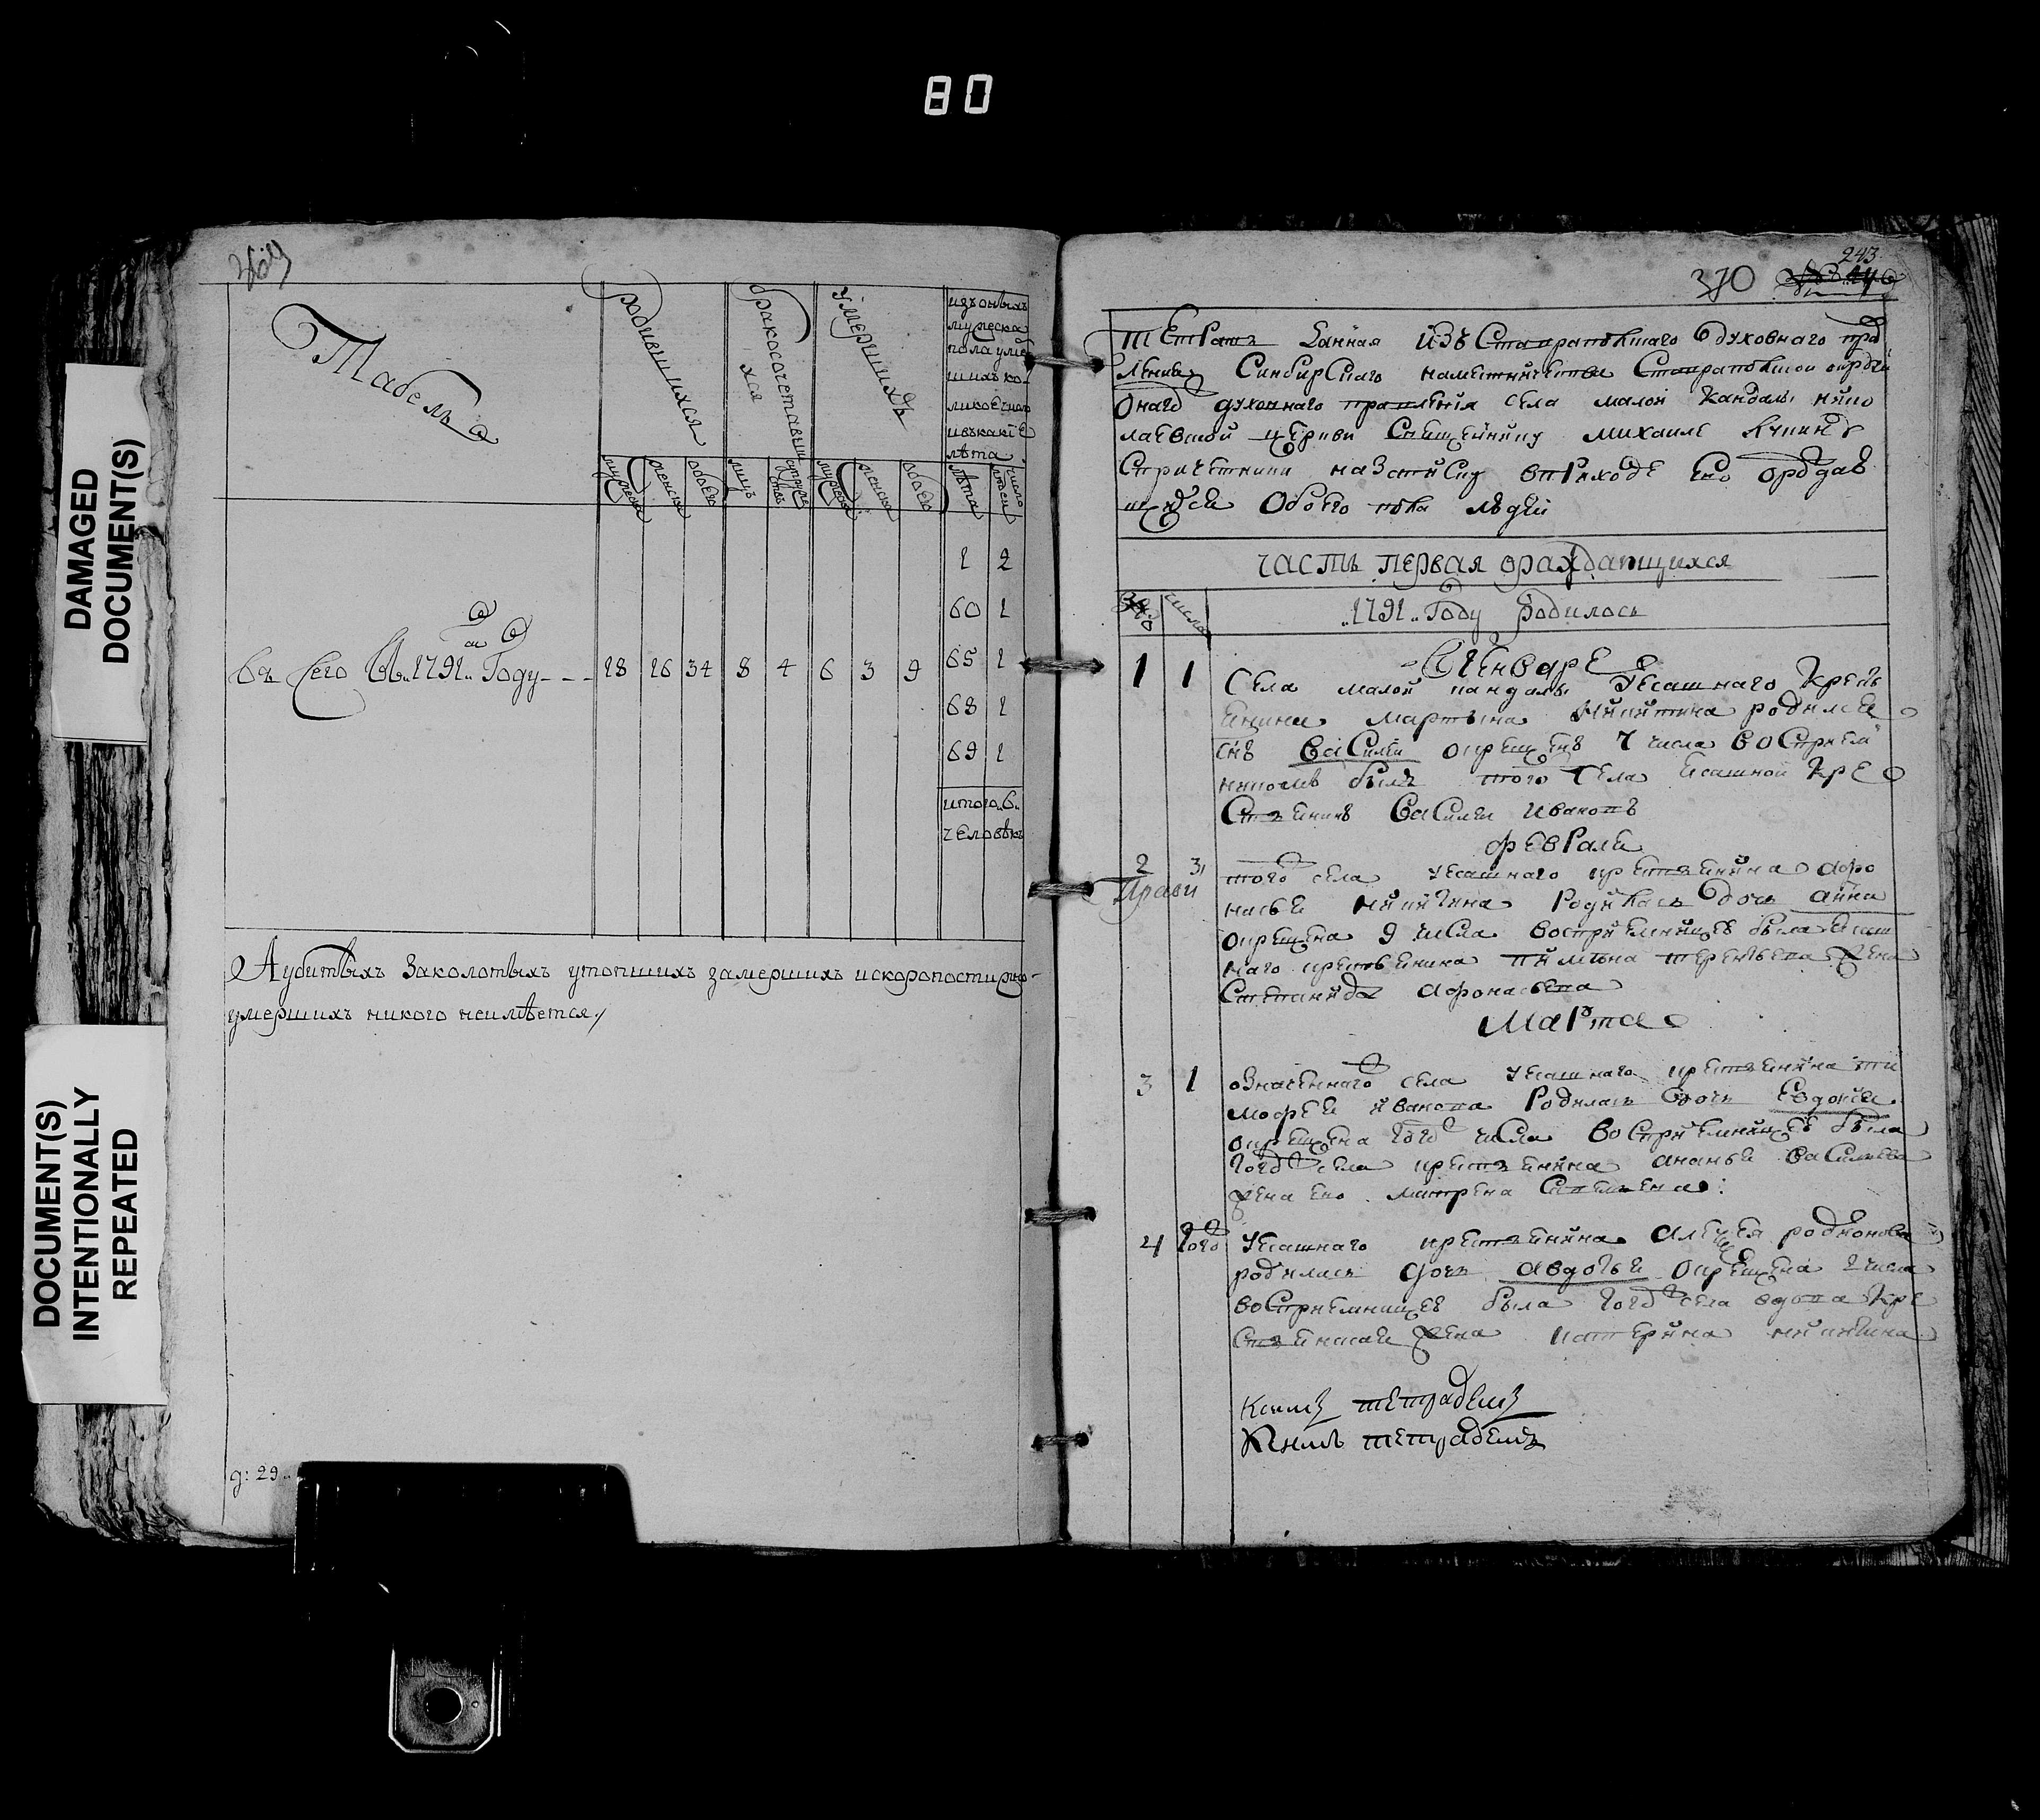 80
DAMAGED
DOCUMENT(S)
DOCUMENT(S)
INTENTIONALLY
REPEATED
Табель
родившихся
бракосочетавши
хся
умершихъ
изъ оныхъ
мужеска
пола умер
шихъ ко-
ликое число
ивъ какiе
лѣта
мужеска
женска
обоего
лицъ
супруже
ствъ
мужеска
женска
обоего
лѣта
число
людей
1 2
60 1
въ Сего Въ 1791 Году - - - 18 16 34 8 4 6 3 9 65 1
68 1
69 1
итого 6
человѣкъ
А убитыхъ заколотыхъ утопшихъ замершихъ искоропостижно
умершихъ никого неимѣется
д: 29
243
370
тетрать данная изъ Ставрапольскаго духовнаго пра
вления Синбирскаго наместничества Ставрапольской округи
Онаго духовнаго правления села малой кандалы нико
лаевской церкви Священнику михаиле
Спричетники назаписку вприходе ево
щихся Обоего пола людей
часть первая ораждающихся
число
1791 Году Родилось
Генваре
1 1 Села малой кандалы Ясашнаго Кресть
янина мартына никитина родился
снъ василей окрещенъ 7 числа воспрiем
никомъ былъ того Села ясашной Кре
Стьянинъ василей ивановъ
февраля
2 3 того села ясашнаго крестьянина афо
насья никитина Родилась дочь анна
окрещена 9 числа воспрiемницею была ясаш
наго крестьянина терентьева жена
Степанида афонасьева
Марта
3 1 означеннаго села ясашнаго крестьянина ти
мофея иванова Родилась дочь Евдокия
окрещена того числа воспрiемницею была
тогож села крестьянина ананьи васильева
жена ево матрена Савельева
4 того ясашнаго крестьянина алексея родионова
родилась дочь авдотья окрещена числа
воспрiемницею была тогож села вдова Кре
Стьянская жена катерина никитина